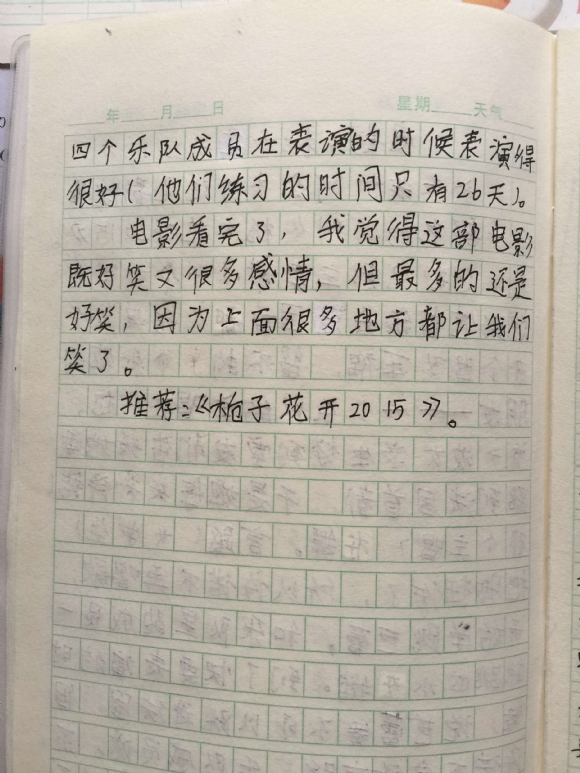 年 月 日 星期 天气
四个乐队成员在表演的时候表演得
很好(他们练习的时间只有26天)。
电影看完了，我觉得这部电影
既好笑又很多感情，但最多的还是
好笑，因为上面很多地方都让我们
笑了。
推荐:《栀子花开2015》。